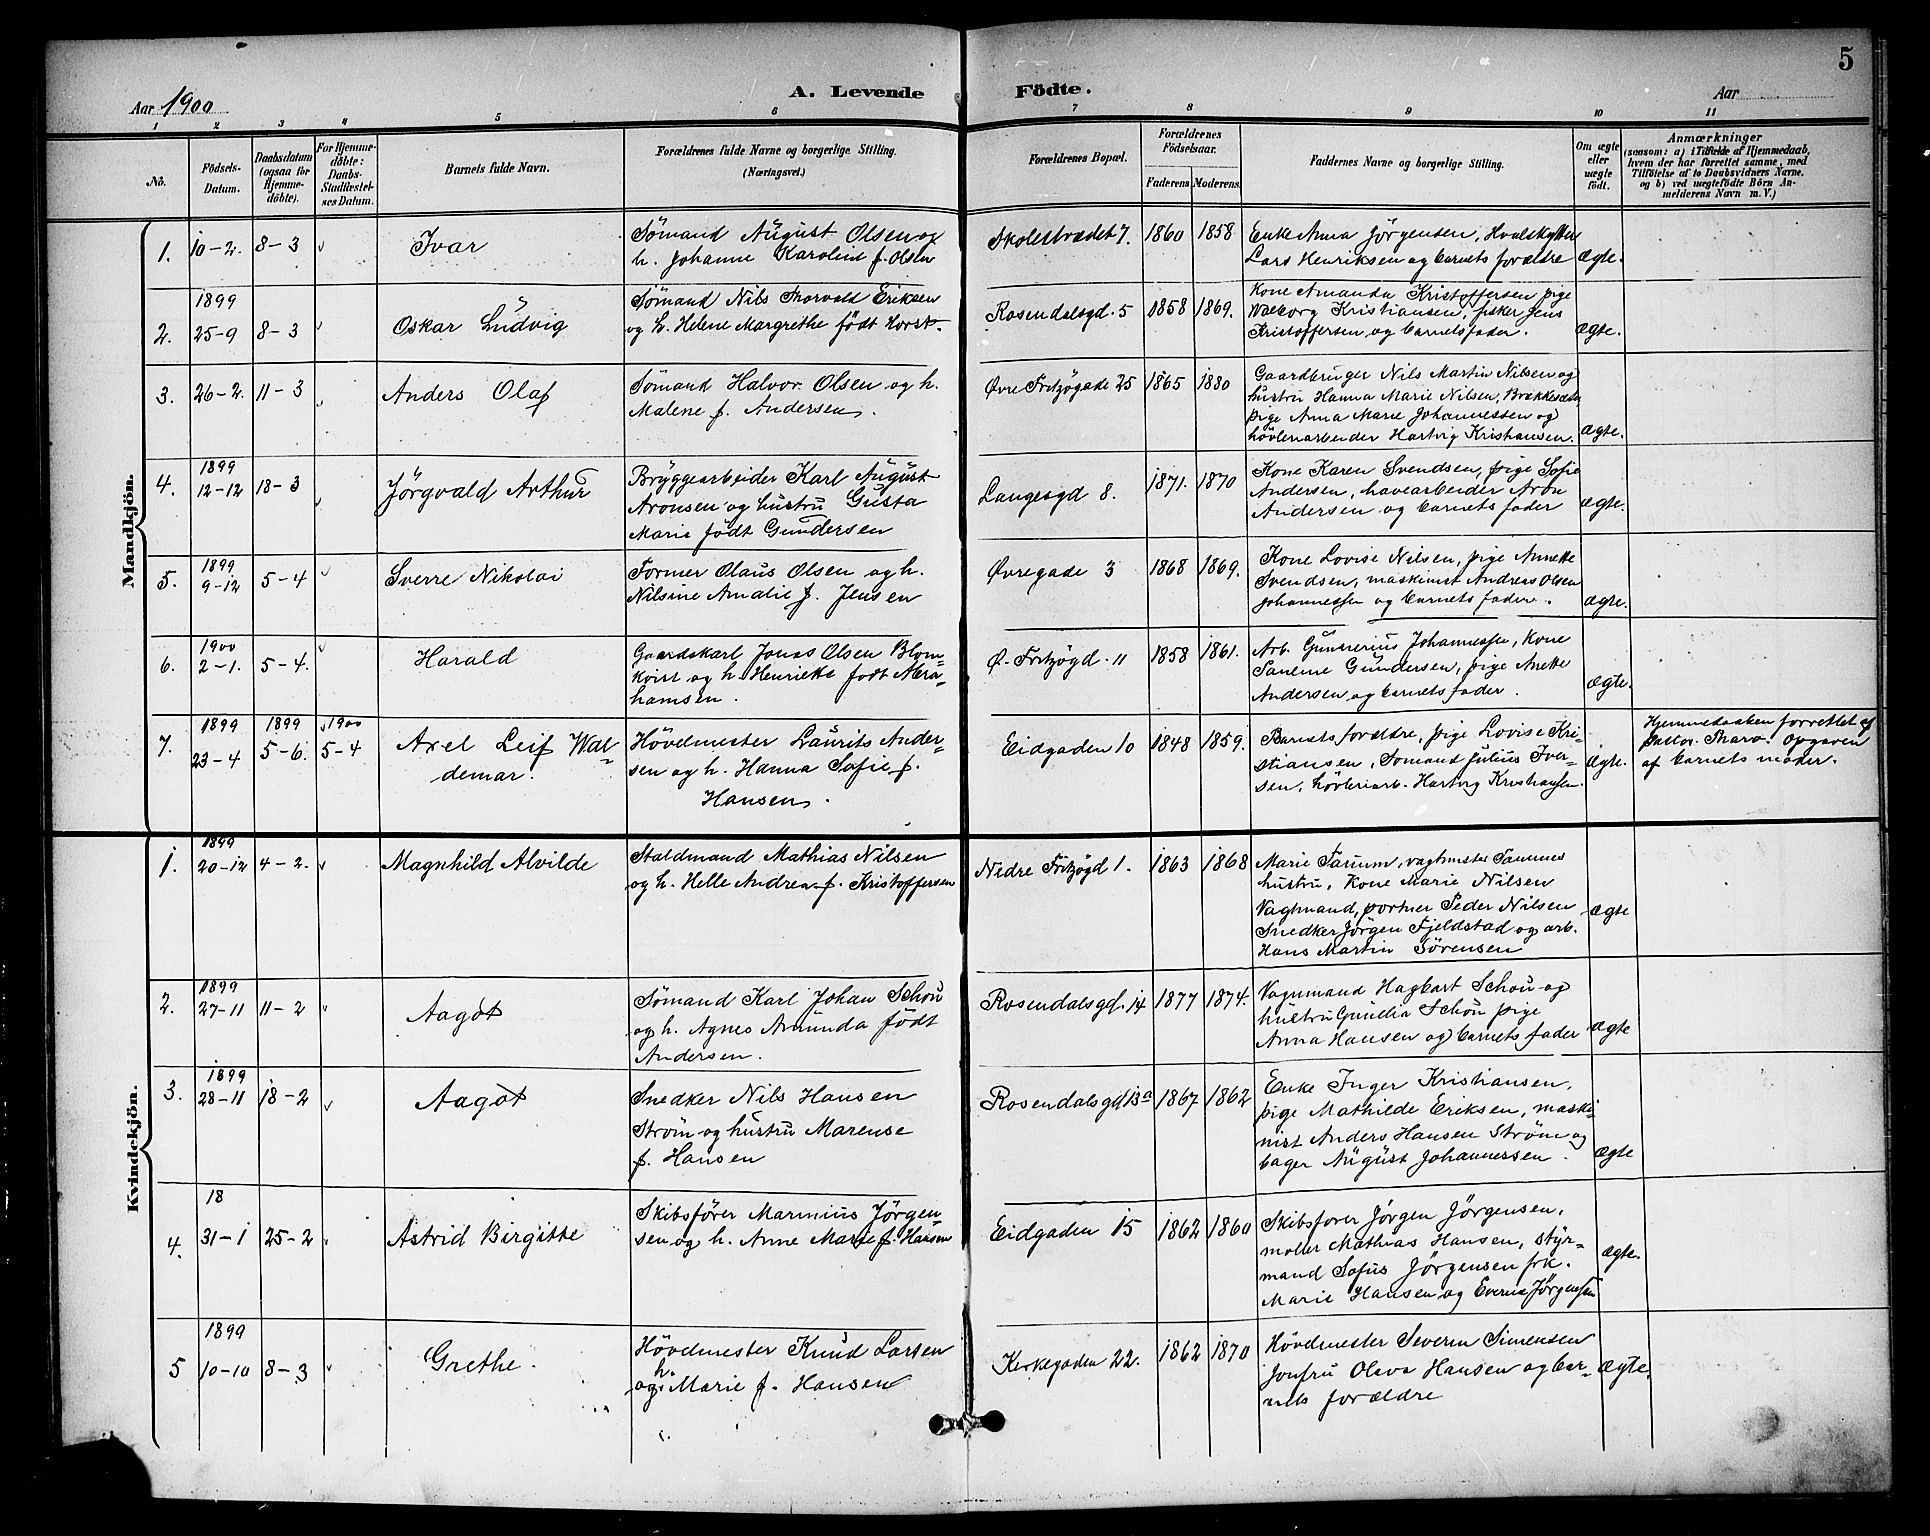 5
Aar 1900
A. Levende Födte.
Aar
1 2 3 4 5 6 7 8 9 10 11
Nô.
Födsels-Datum.
Daabsdatum (ogsaa för Hjemme-döbte).
For Hjemme-döbte: Daabs-Stadfæstel-ses Datum.
Barnets fulde Navn.
Forældrenes fulde Navne og borgerlige Stilling. (Næringsvei.)
Forældrenes Bopæl.
Forældrenes Födselsaar.
Faderens. Moderens.
Faddernes Navne og borgerlige Stilling.
Om ægte eller uægte födt.
Anmærkninger
(saasom: a) i Tilfælde af Hjemmedaab,
hvem der har forrettet samme, med
Tilföielse af to Daabsvidners Navne,
og b) ved uægtefödte Börn An-
melderens Navn m. V.)
Mandkjön.
1. 10-2. 8-3 Ivar
Sömand August Olsen og
h. Johanne Karoline f. Olsen
Skolestrædet 7. 1860 1858
Enke Anna Jørgensen, Hvalskytter
Lars Henriksen og barnets forældre ægte.
1899
2. 25-9 8-3 Oskar Ludvig
Sømand Nils Thorvald Eriksen
og h. Helene Margrethe født Horst.
Rosendalsgd. 5 1858 1869.
Kone Amanda Kristoffersen pige
Valborg Kristiansen, fisker Jens
Kristoffersen og barnets fader. ægte.
3. 26-2. 11-3 Anders Olaf
Sømand Halvor Olsen og h.
Malene f. Andersen.
Øvre Fritzøgade 25 1865 1880
Gaardbruger Nils Martin Nilsen og
hustru Hanna Marie Nilsen,
pige Anna Marie Johannessen og
høvleriarbeider Hartvig Kristiansen. ægte.
1899
4. 12-12 18-3 Jörgvald Arthur
Bryggearbeider Karl August
Aronsen og hustru Gusta
Marie født Gundersen
Langesgd 8. 1871. 1870
Kone Karen Svendsen, pige Sofie
Andersen, havearbeider Aron
Andersen og barnets fader ægte.
1899
5. 9-12 5-4 Sverre Nikolai
Former Olaus Olsen og h.
Nilsine Amalie f. Jensen
Øvregade 3 1868 1869.
Kone Lovise Nilsen, pige Annette
Svendsen, maskinist Andreas Olsen
Johannessen og barnets fader. ægte.
1900
6. 2-1. 5-4. Harald
Gaardskarl Jonas Olsen Blom-
kvist og h. Henriette født Abra-
hamsen.
Ø. Fritzøgd. 11 1858 1861.
Arb. Gunnerius Johannessen, Kone
Gundersen, pige Anette
Andersen og barnets fader. ægte.
1899 1899 1900
7. 23-4 5-6. 5-4 Axel Leif Wal-
demar.
Hövdmester Laurits Ander-
sen og h. Hanna Sofie f.
Hansen.
Eidgaden 10 1848 1859.
Barnets forældre, pige Lovise Kri-
stiansen, Sømand Julius Iver-
sen, høvleriarb. Hartvig Kristiansen. ægte.
Hjemmedaaben forrettet af
pastor. Opgaven
af barnets moder.
Kvindekjön.
1899
1. 20-12 4-2. Magnhild Alvilde
Staldmand Mathias Nilsen
og h. Helle Andrea f. Kristoffersen
Nedre Fritzøgd 1. 1863 1868
Marie
hustru, Kone Marie Nilsen
Vagtmand, portner Peder Nilsen
Snedker Jörgen Fjeldstad og arb.
Hans Martin Sørensen ægte
1899
2. 27-11 11-2 Aagot
Sømand Karl Johan Schou
og h. Agnes Amunda født
Andersen.
Rosendalsgd. 14 1877 1874.
Vognmand Hagbart Schou og
hustru Gunilia Schou pige
Anna Hansen og barnets fader ægte
1899
3. 28-11 18-2 Aagot
Snedker Nils Hansen
Strøm og hustru Marense
f. Hansen
Rosendalsgd 13a 1867 1862
Enke Inger Kristiansen,
pige Mathilde Eriksen, maski-
nist Anders Hansen Strøm og
bager August Johannessen. ægte
18
4. 31-1 25-2 Astrid Birgitte
Skibsfører Marinius Jörgen-
sen og h. Anne Marie f. Hansen
Eidgaden 15 1862 1860
Skibsfører Jørgen Jørgensen,
møller Mathias Hansen, styr-
mand Sofus Jørgensen frk.
Marie Hansen og Jørgensen ægte.
1899
5 10-10 8-3 Grethe.
Hövdmester Knud Larsen
og h. Marie f. Hansen
Kirkegaden 22. 1862 1870
Hövdmester Severin Simensen
Jomfru Olava Hansen og bar-
nets forældre ægte.